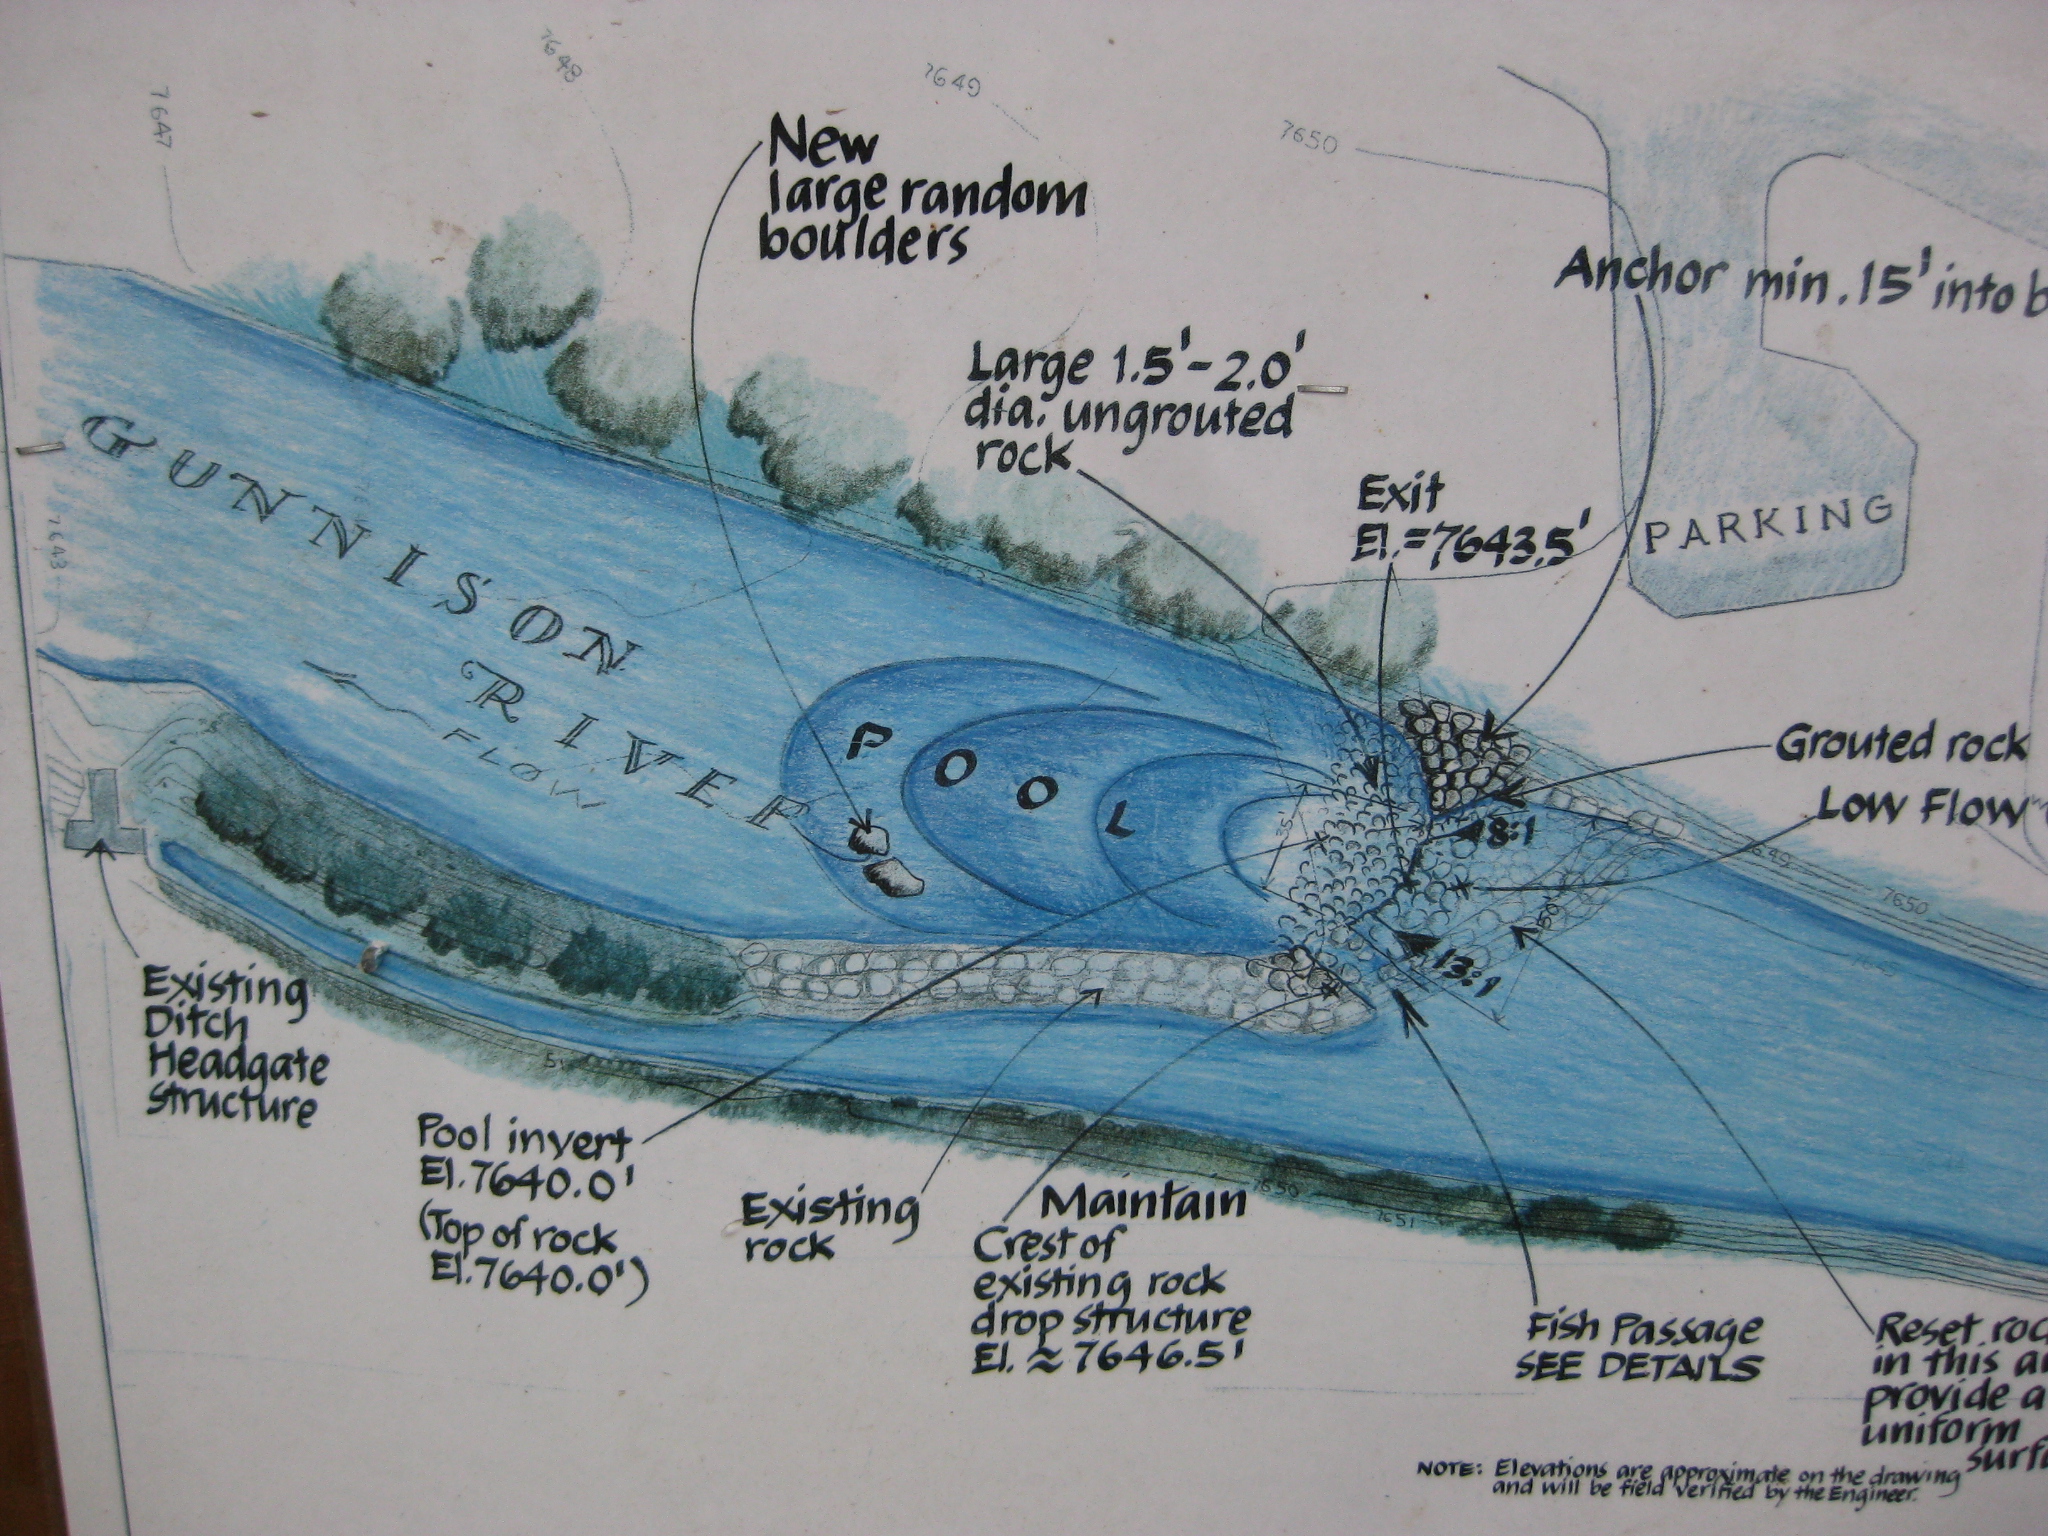 7647
7648
7649
7650
New
large random
boulders
Anchor min. 15' into b
Large 1.5'-2.0'
dia. ungrouted
rock
Exit
El.=7643.5'
PARKING
GUNNISON
RIVER
FLOW
7643
POOL
Grouted rock
Low Flow
8:1
13:1
35'
50'
7649
7650
Existing
Ditch
Headgate
structure
Pool invert
El. 7640.0'
(Top of rock
El. 7640.0')
Existing
rock
Maintain
Crest of
existing rock
drop structure
El. ≈ 7646.5'
7650
7651
51
Fish Passage
SEE DETAILS
Reset roc
in this a
provide a
uniform
surf
NOTE: Elevations are approximate on the drawing
and will be field verified by the Engineer.